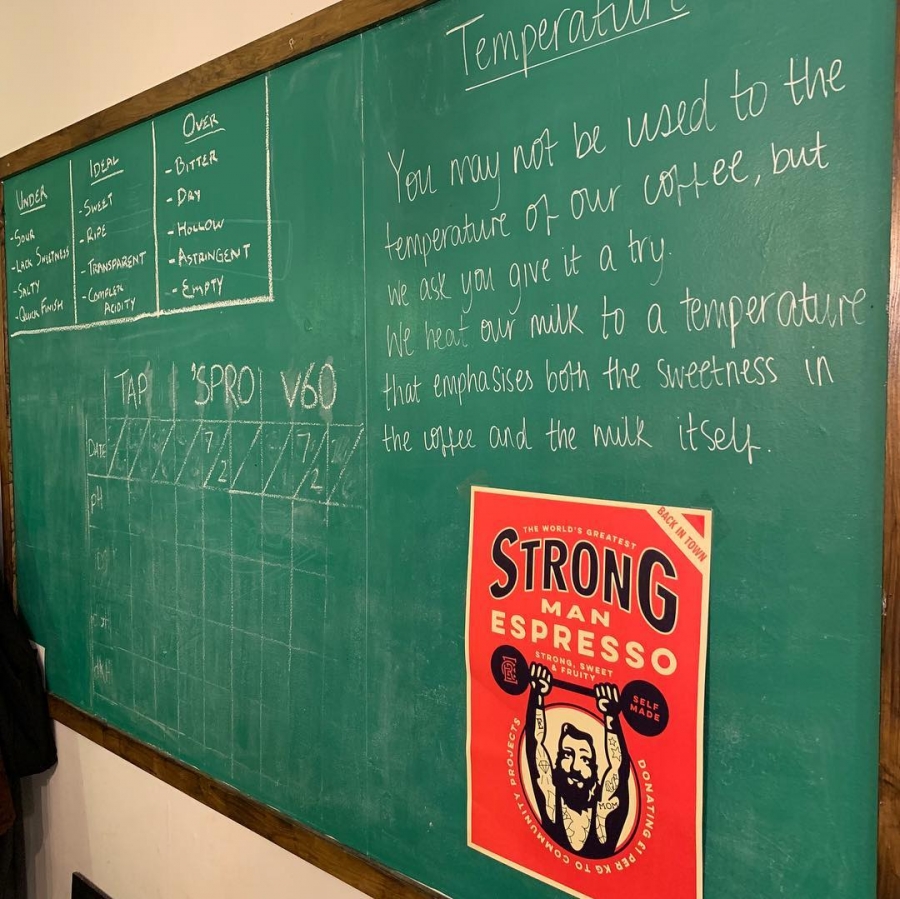 UNDER
- SOUR
- LACK SWEETNESS
- SALTY
- QUICK FINISH
IDEAL
- SWEET
- RIPE
- TRANSPARENT
- COMPLEX
ACIDITY
OVER
- BITTER
- DRY
- HOLLOW
- ASTRINGENT
- EMPTY
TAP 'SPRO V60
DATE 7/2 7/2
pH
Temperature
You may not be used to the
temperature of our coffee, but
we ask you give it a try.
We heat our milk to a temperature
that emphasises both the sweetness in
the coffee and the milk itself.
BACK IN TOWN
THE WORLD'S GREATEST
STRONG
MAN
ESPRESSO
STRONG, SWEET
& FRUITY
SELF
MADE
MOM
DONATING £1 PER KG TO COMMUNITY PROJECTS